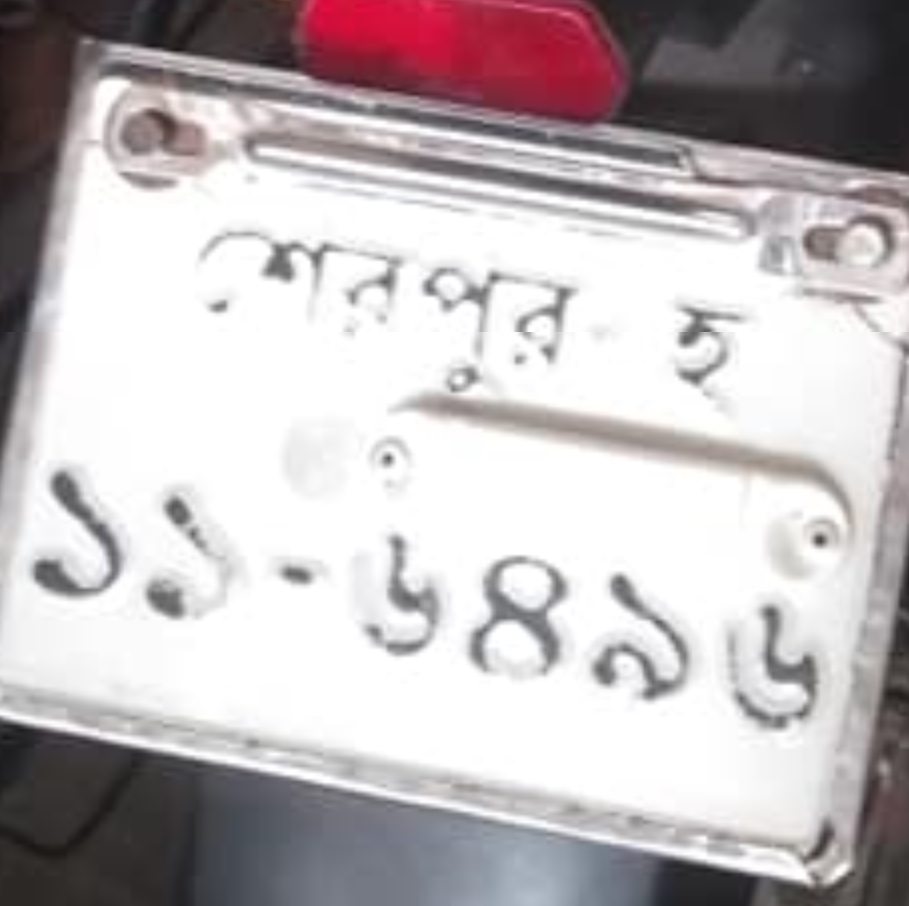 শেরপুর হ
১১-৬৪৯৬